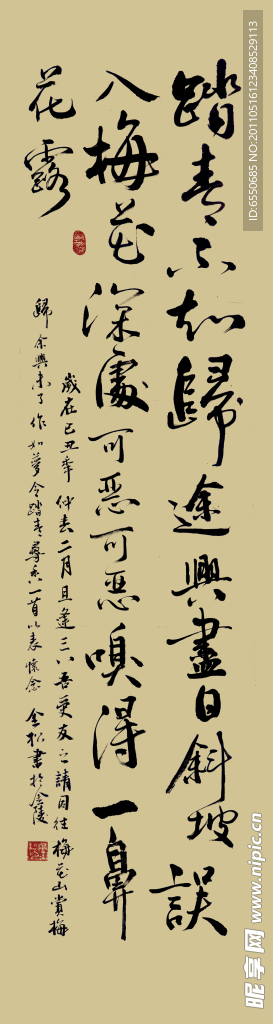 踏青不知歸途興盡日斜坡誤
入梅花深處可惡可惡嗅得一鼻
花露
歲在己丑年仲春二月且逢三八吾受友之請同往梅花山賞梅
歸余興未了作如夢令踏青尋香一首以表懷念金松書於金陵
昵享网 www.nipic.cn
ID:6550685 NO:20110516123408529113